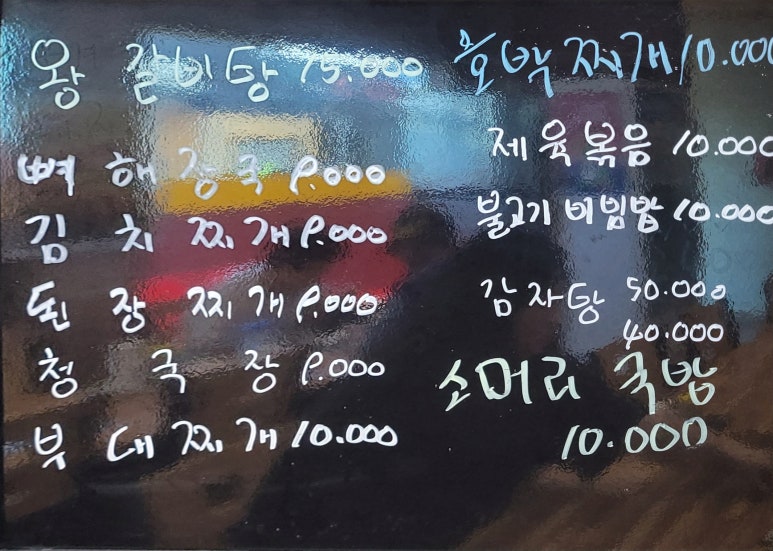 왕 갈비탕 15.000
뼈 해장국 9.000
김 치 찌개 9.000
된 장 찌개 9.000
청 국 장 9.000
부 대 찌개 10.000
호박찌개 10.000
제육볶음 10.000
불고기 비빔밥 10.000
감자탕 50.000
40.000
소머리 국밥
10.000